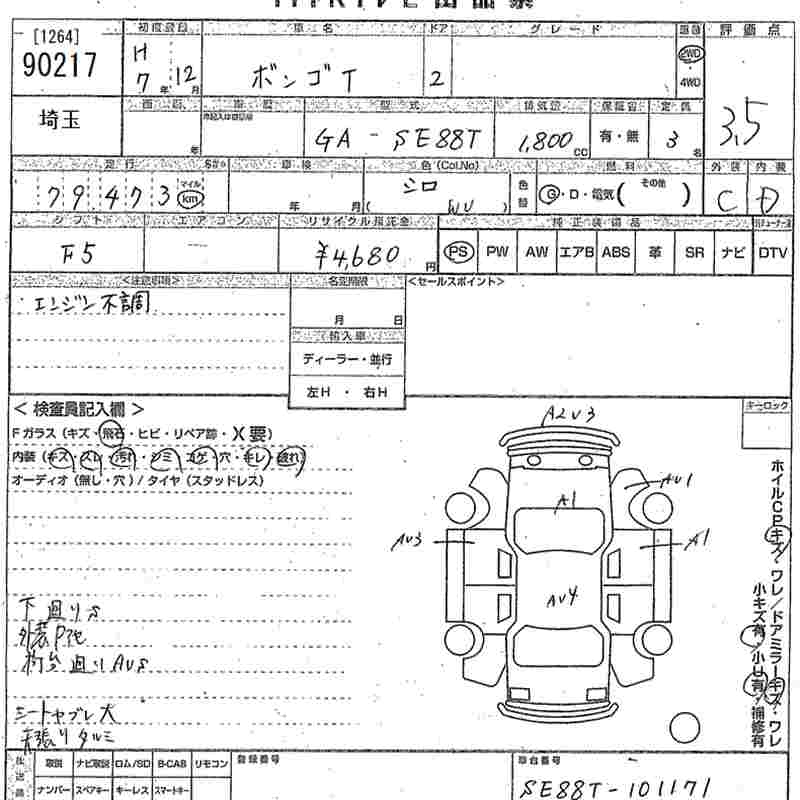 [1264]
90217
初度登録
車名
ドア
グレード
評価点
H
7年 12月
ボンゴT
2
2WD
4WD
3.5
埼玉
年
型式
排気量
定員
GA-SE88T
1,800cc
有・無
3名
走行
車検
色(Col.No)
燃料
外装
内装
79473
マイル
km
年 月(
シロ
)
色替
G・D・電気( その他 )
C
D
シフト
エアコン
リサイクル預託金
純正装備品
F5
¥4,680円
PS
PW
AW
エアB
ABS
革
SR
ナビ
DTV
<注意事項>
名変期限
<セールスポイント>
エンジン不調
月 日
輸入車
ディーラー・並行
左H・右H
<検査員記入欄>
Fガラス (キズ・飛石・ヒビ・リペア跡・X要)
内装 (キズ・スレ・汚れ・シミ・コゲ・穴・キレ・破れ)
オーディオ (無し・穴) / タイヤ (スタッドレス)
キーロック
A2U3
AU1
A1
AU3
A1
AU4
ホイルCPキズ・ワレ/ドアミラーキズ・ワレ
小キズ有・小U有・補修有
下廻りS
荷台廻りAUS
シートヤブレ大
天張りタルミ
取説
ナビ取説
ロム/SD
B-CAS
リモコン
登録番号
車台番号
ナンバー
スペアキー
キーレス
スマートキー
SE88T-101171